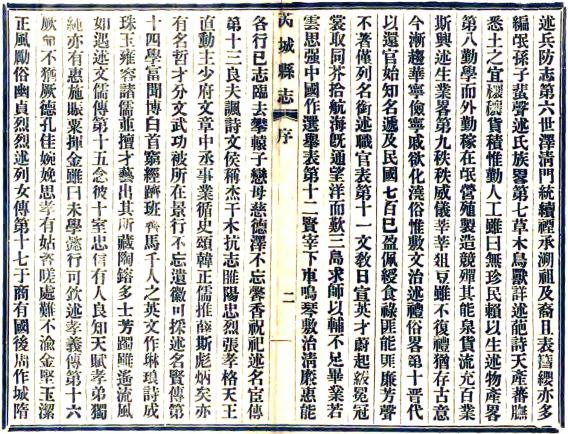 述兵防志第六世澤清門統續禋承溯祖及裔且表簪纓亦多
編氓孫子蜚聲述氏族畧第七草木鳥獸詳述葩詩天產蕃膴
悉土之宜穜穉貨積惟勤人工雖曰無珍民賴以生述物產畧
第八勤學而外勤稼在氓營殖製造競殫其能泉貨流充百業
斯興述生業畧第九秩秩威儀莘莘俎豆雖不復禮猶存古意
今漸趨華寧儉寧戚欲化澆俗惟敷文治述禮俗畧第十晋代
以還官始知名遞及民國七百已盈佩綬食祿匪能匪廉芳聲
不著僅列名銜述職官表第十一文敎日宣英才蔚起紱冕冠
裳取同芥拾航海旣通望洋而歎三島求師以輔不足畢業若
雲思强中國作選舉表第十二賢宰下車鳴琴敷治淸廉惠能
芮城縣志 序 二
各行已志臨去攀轅子戀母慈德澤不忘馨香祝祀述名宦傳
第十三良夫諷詩文侯稱杰干木抗志睢陽忠烈張孝格天王
直動主少府文章中丞事業循史頌韓正儒推薛斯彪炳矣亦
有名哲才分文武功被所在景行不忘遺徽可採述名賢傳第
十四學富聞博白首窮經躋班齊馬千人之英文作琳瑯詩成
珠玉雍容諸儒並擅才藝出其所藏陶鎔多士芳躅雖遙流風
如遇述文儒傳第十五念彼十室忠信有人良知天賦孝弟獨
純亦有惠施賑粟揮金雖曰未學懿行可欽述孝義傳第十六
厥命不猶厥德孔佳婉娩思孝有姑嗟處難不渝金堅玉潔
正風勵俗幽貞烈烈述列女傳第十七于商有國後周作城隋